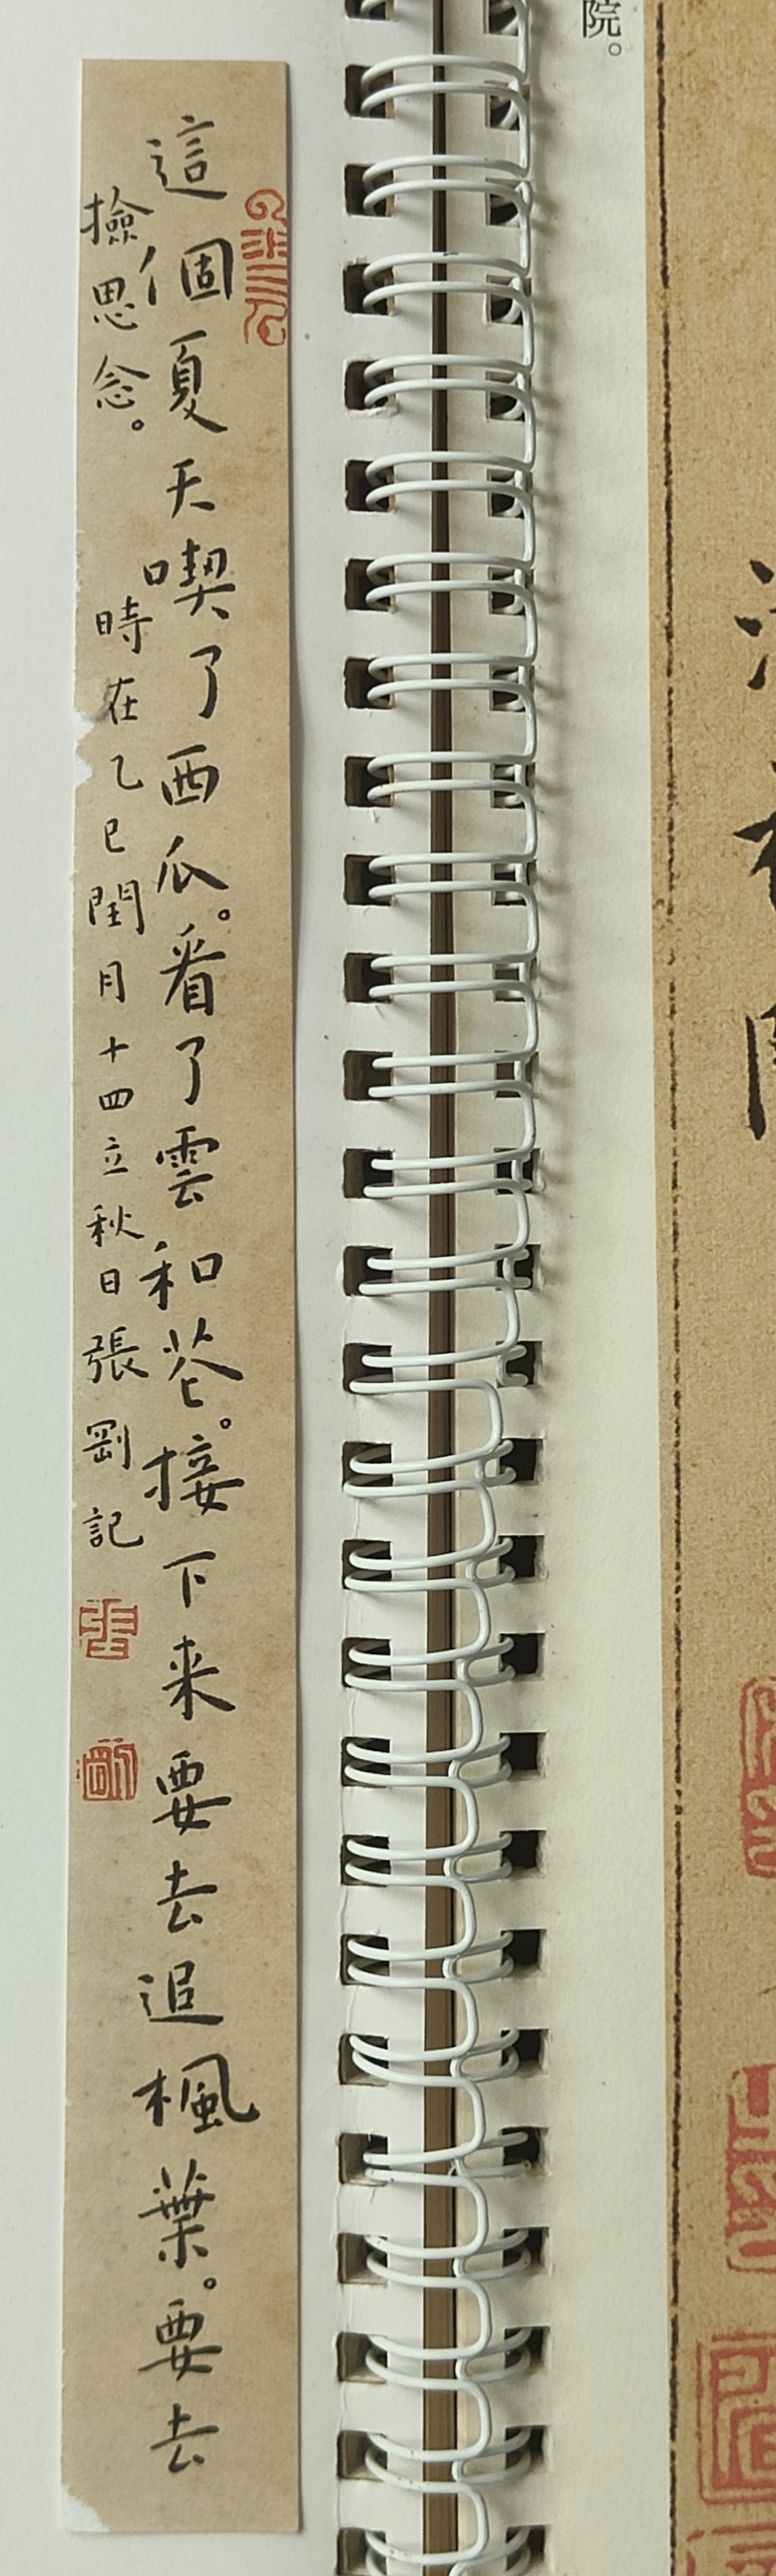 這個夏天喫了西瓜。看了雲和花。接下来要去追楓葉。要去
撿思念。
時在乙巳閏月十四立秋日張剛記
院。